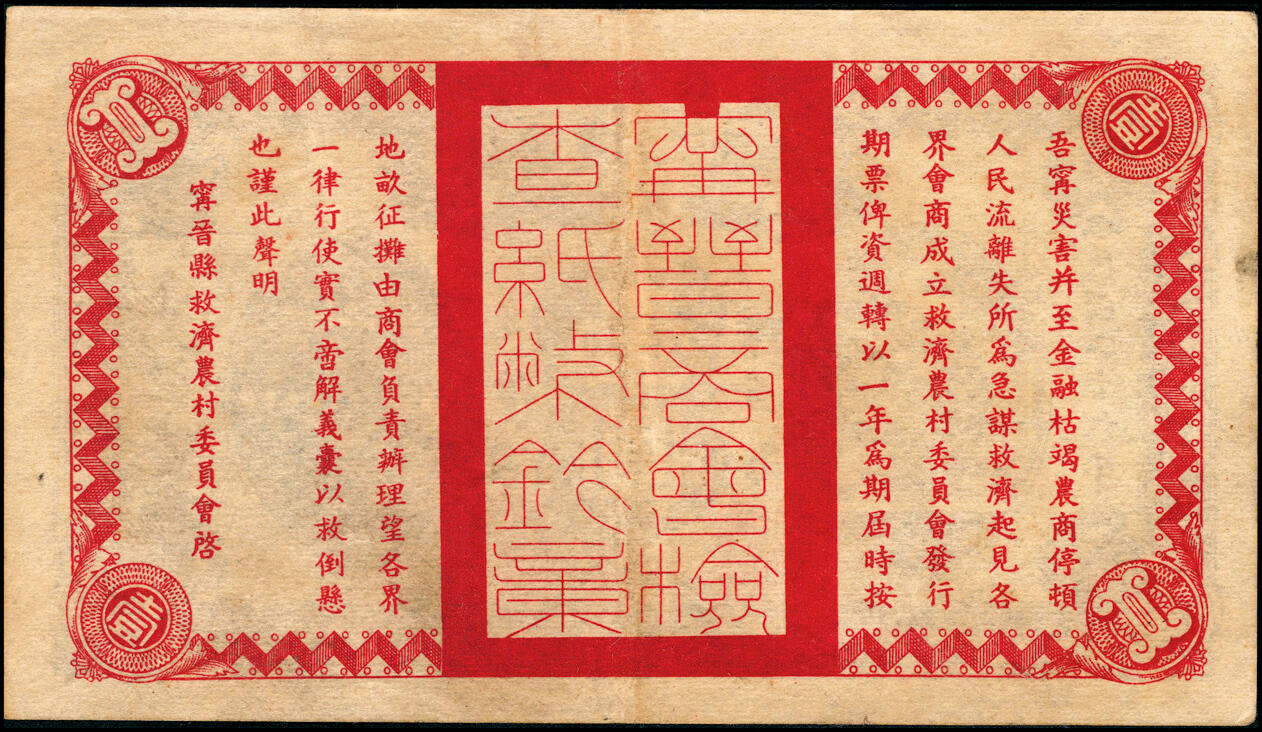 吾甯災害并至金融枯竭農商停頓
人民流離失所爲急謀救濟起見各
界會商成立救濟農村委員會發行
期票俾資週轉以一年爲期屆時按
甯晉商會檢
查紙幣鈐
地畝征攤由商會負責辦理望各界
一律行使實不啻解義囊以救倒懸
也謹此聲明
甯晉縣救濟農村委員會啓